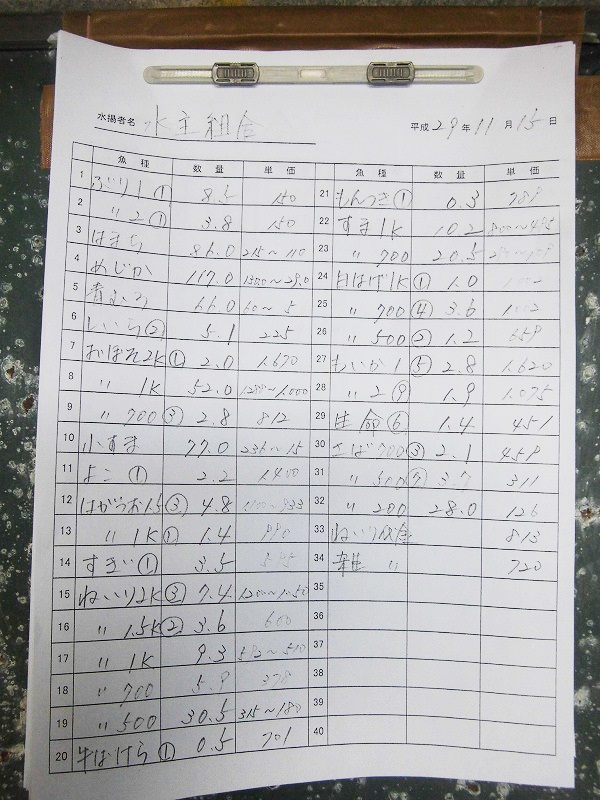 水揚者名 水主組合
平成 29年 11月 15日
魚種 数量 単価
1 ぶり1 ① 8.5 150
2 〃 2 ① 3.8 150
3 はまち 86.0 215～110
4 めじか 117.0
5 66.0 60～5
6 しいら ② 5.1 225
7 おぼそ2K ① 2.0 1.670
8 〃 1K 52.0 1280～1.000
9 〃 700 ③ 2.8 812
10 小すま 77.0 236～15
11 よこ ① 2.2 1400
12 はがつお1.5 ③ 4.8
13 〃 1K ① 1.4
14 ① 3.5
15 ねいり2K ③ 7.4 1200～1.050
16 〃 1.5K ② 3.6 600
17 〃 1K 9.3 582～510
18 〃 700 5.9 378
19 〃 500 30.5 315～180
20 ① 0.5 701
魚種 数量 単価
21 もんつき ① 0.3 789
22 すま1K 10.2
23 〃 700 20.5
24 白はげ1K ① 1.0
25 〃 700 ④ 3.6
26 〃 500 ② 1.2 659
27 もいか1 ⑤ 2.8 1.620
28 〃 2 ⑨ 1.9 1.075
29 ⑥ 1.4 451
30 さば700 ③ 2.1 459
31 〃 500 3.7 311
32 〃 200 28.0 126
33 ねいり 813
34 雑 〃 720
35
36
37
38
39
40